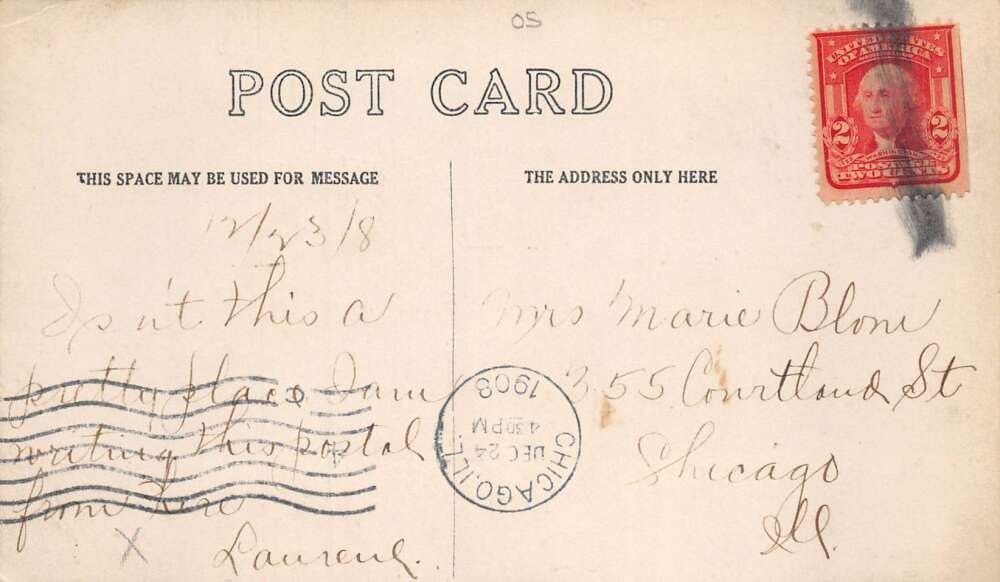 05
POST CARD
THIS SPACE MAY BE USED FOR MESSAGE
12/23/8
Isn't this a
pretty place I am
writing this postal
from here
X
THE ADDRESS ONLY HERE
Mrs Marie Blom
355 Courtland St
Chicago
Ill.
UNITED STATES
OF AMERICA
2 2
POSTAGE
TWO CENTS
CHICAGO, ILL.
DEC 24
430 PM
1908